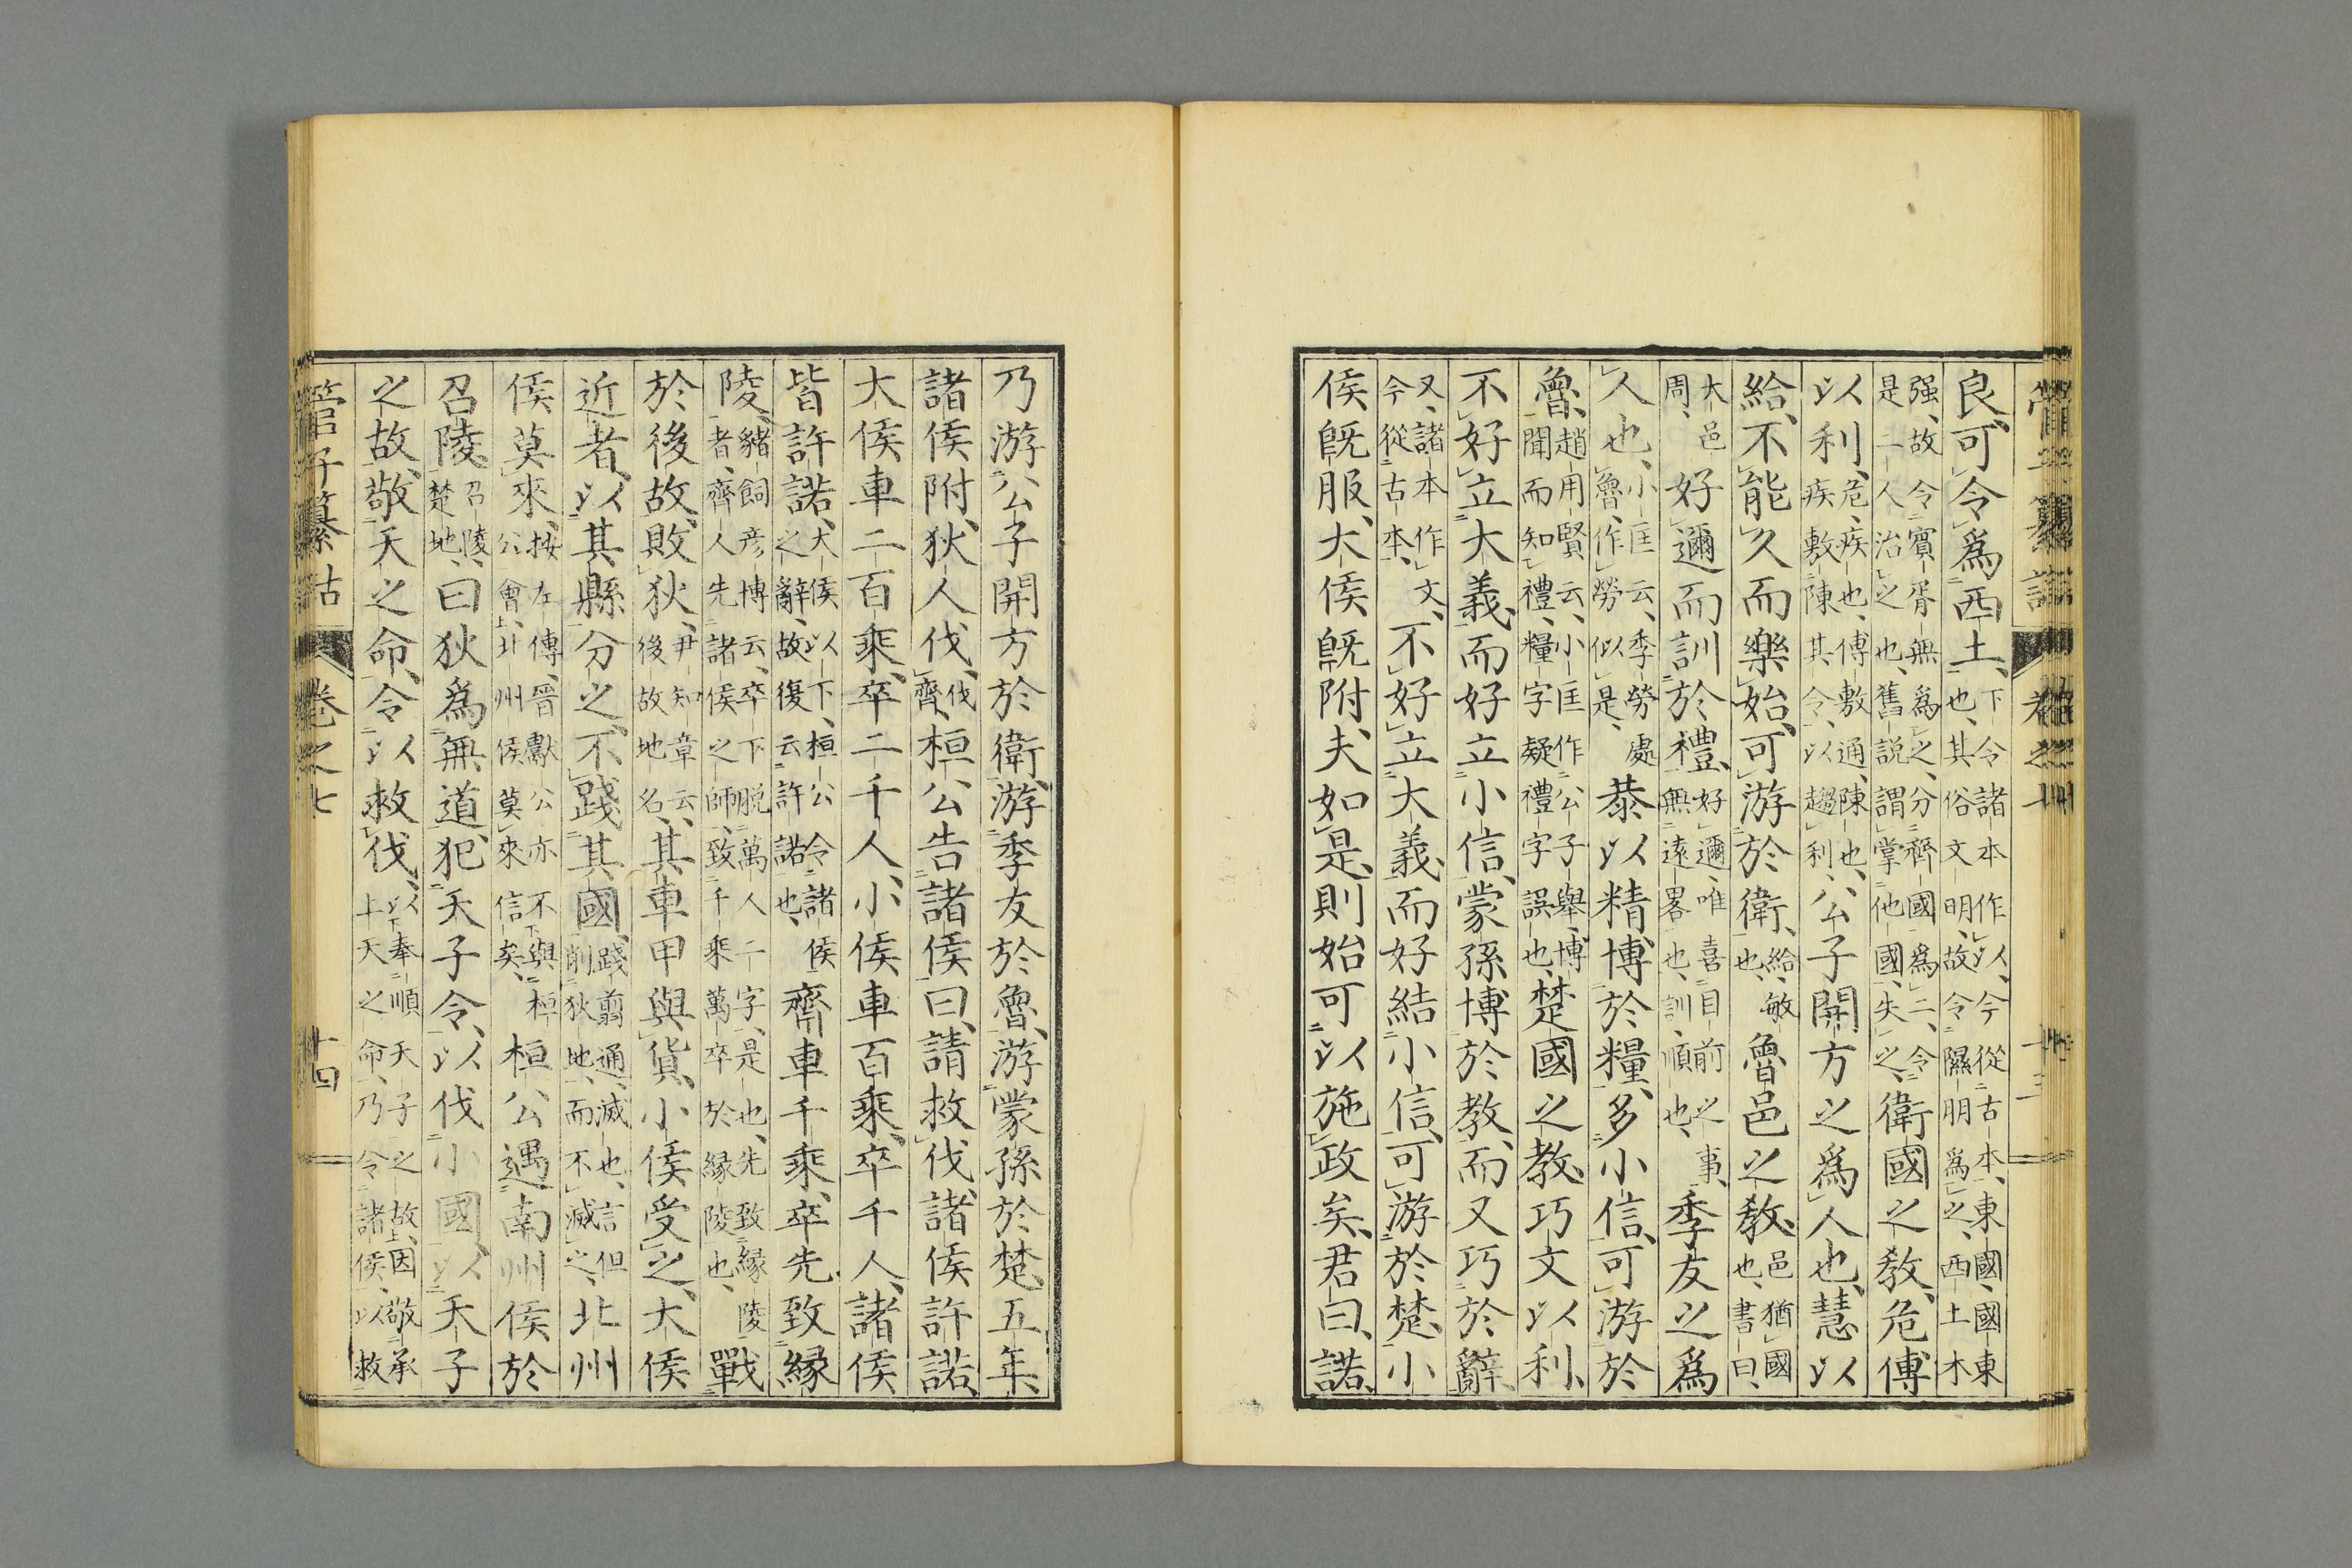 良、可令爲西土、下令諸本作以、今從古本、東國、國東也、其俗文明、故令隰朋爲之、西土木
强、故令賓胥無爲之、分齊國爲二、令是二人治之也、舊說謂掌他國、失之、衛國之教、危傅
以利、危、疾也、傅、敷通、陳也、疾敷陳其令、以趨利、公子開方之爲人也、慧以
給、不能久而樂始、可游於衛、給、敏也、魯邑之教、邑猶國也、書曰、
大邑周、好邇而訓於禮、好邇、唯喜目前之事、無遠畧也、訓、順也、季友之爲
人也、小匡云、季勞處魯、作勞似是、恭以精、博於糧、多小信、可游於
魯、趙用賢云、小匡作公子舉、博聞而知禮、糧字疑禮字誤也、楚國之教、巧文以利、
不好立大義、而好立小信、蒙孫博於教、而又巧於辭、
又、諸本作文、今從古本、不好立大義、而好結小信、可游於楚、小
侯旣服、大侯旣附、夫如是、則始可以施政矣、君曰、諾、
乃游公子開方於衛、游季友於魯、游蒙孫於楚、五年、
諸侯附、狄人伐、伐齊、桓公告諸侯曰、請救伐、諸侯許諾、
大侯車二百乘、卒二千人、小侯車百乘、卒千人、諸侯
皆許諾、大侯以下、桓公令諸侯之辭、故復云許諾也、齊車千乘、卒先致緣
陵、豬飼彥博云、卒下脫萬人二字、是也、先致緣陵者、齊人先諸侯之師、致千乘萬卒於緣陵也、戰
於後故、敗狄、尹知章云、後故地名、其車甲與貨、小侯受之、大侯
近者、以其縣分之、不踐其國、踐翦通、滅也、言但削狄地、而不滅之、北州
侯莫來、按左傳、晉獻公亦不與桓公會、北州侯莫來信矣、桓公遇南州侯於
召陵、召陵、楚地、曰狄爲無道、犯天子令、以伐小國、以天子
之故、敬天之命、令以救伐、以下奉順天子之故、因敬承上天之命、乃令諸侯、以救
管子纂詁　卷之七　十四